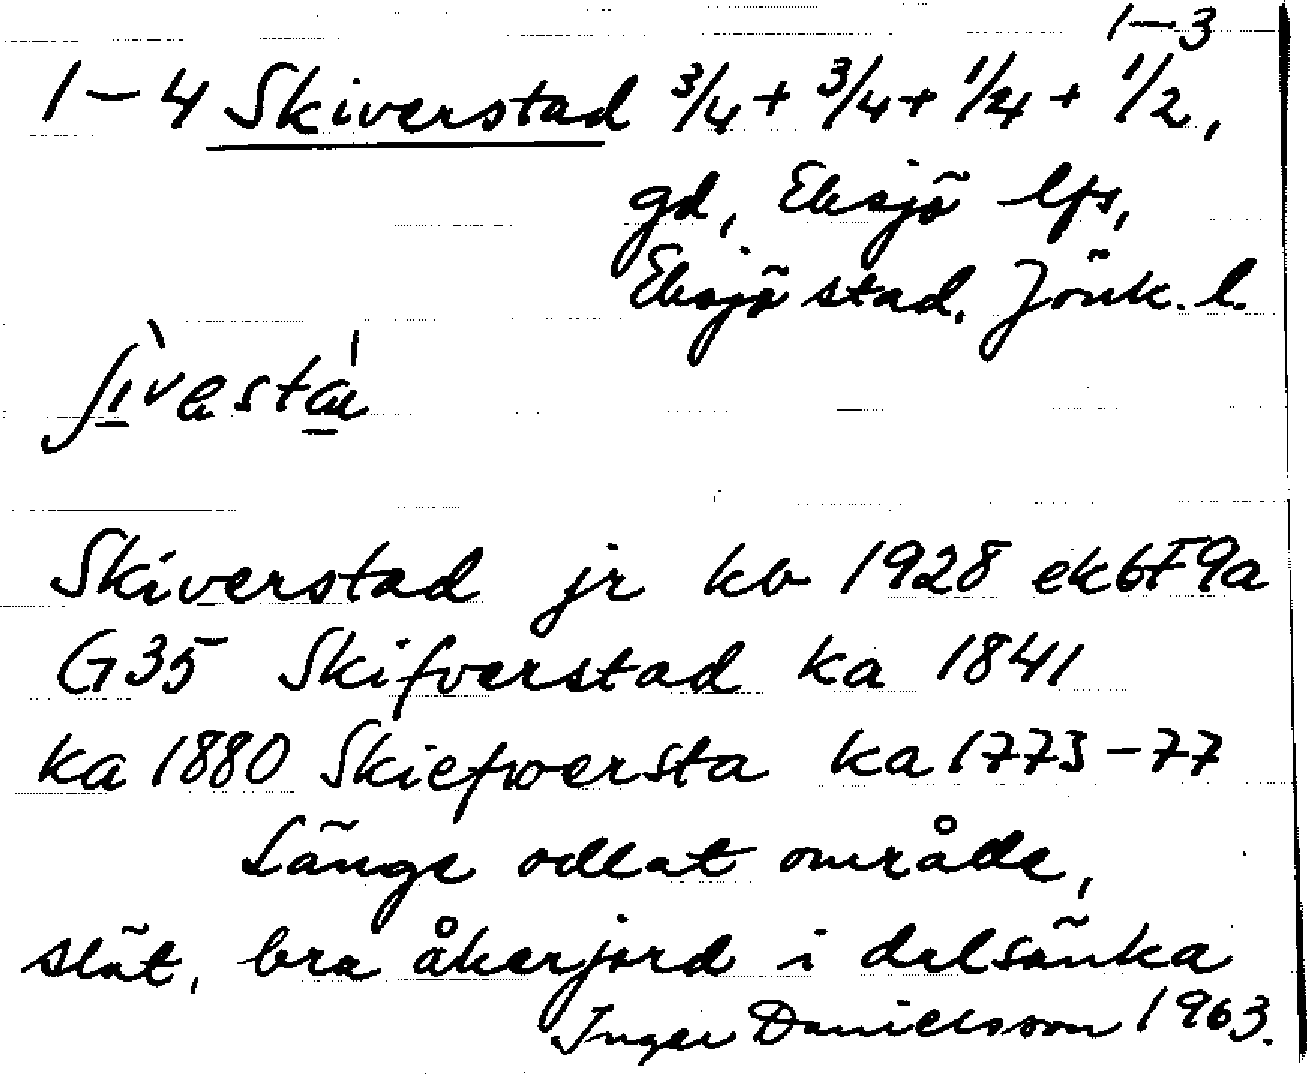 1-3
1-4 Skiverstad 3/4 + 3/4 + 1/4 + 1/2,
gd, Eksjö lfs,
Eksjö stad, Jönk. l.
Skiverstad jr kb 1928 ekbl 9a
G35 Skifverstad ka 1841
ka 1880 Skiefwersta ka 1773-77
Länge odlat område,
slät, bra åkerjord i dalsänka
Inger Danielsson 1963.